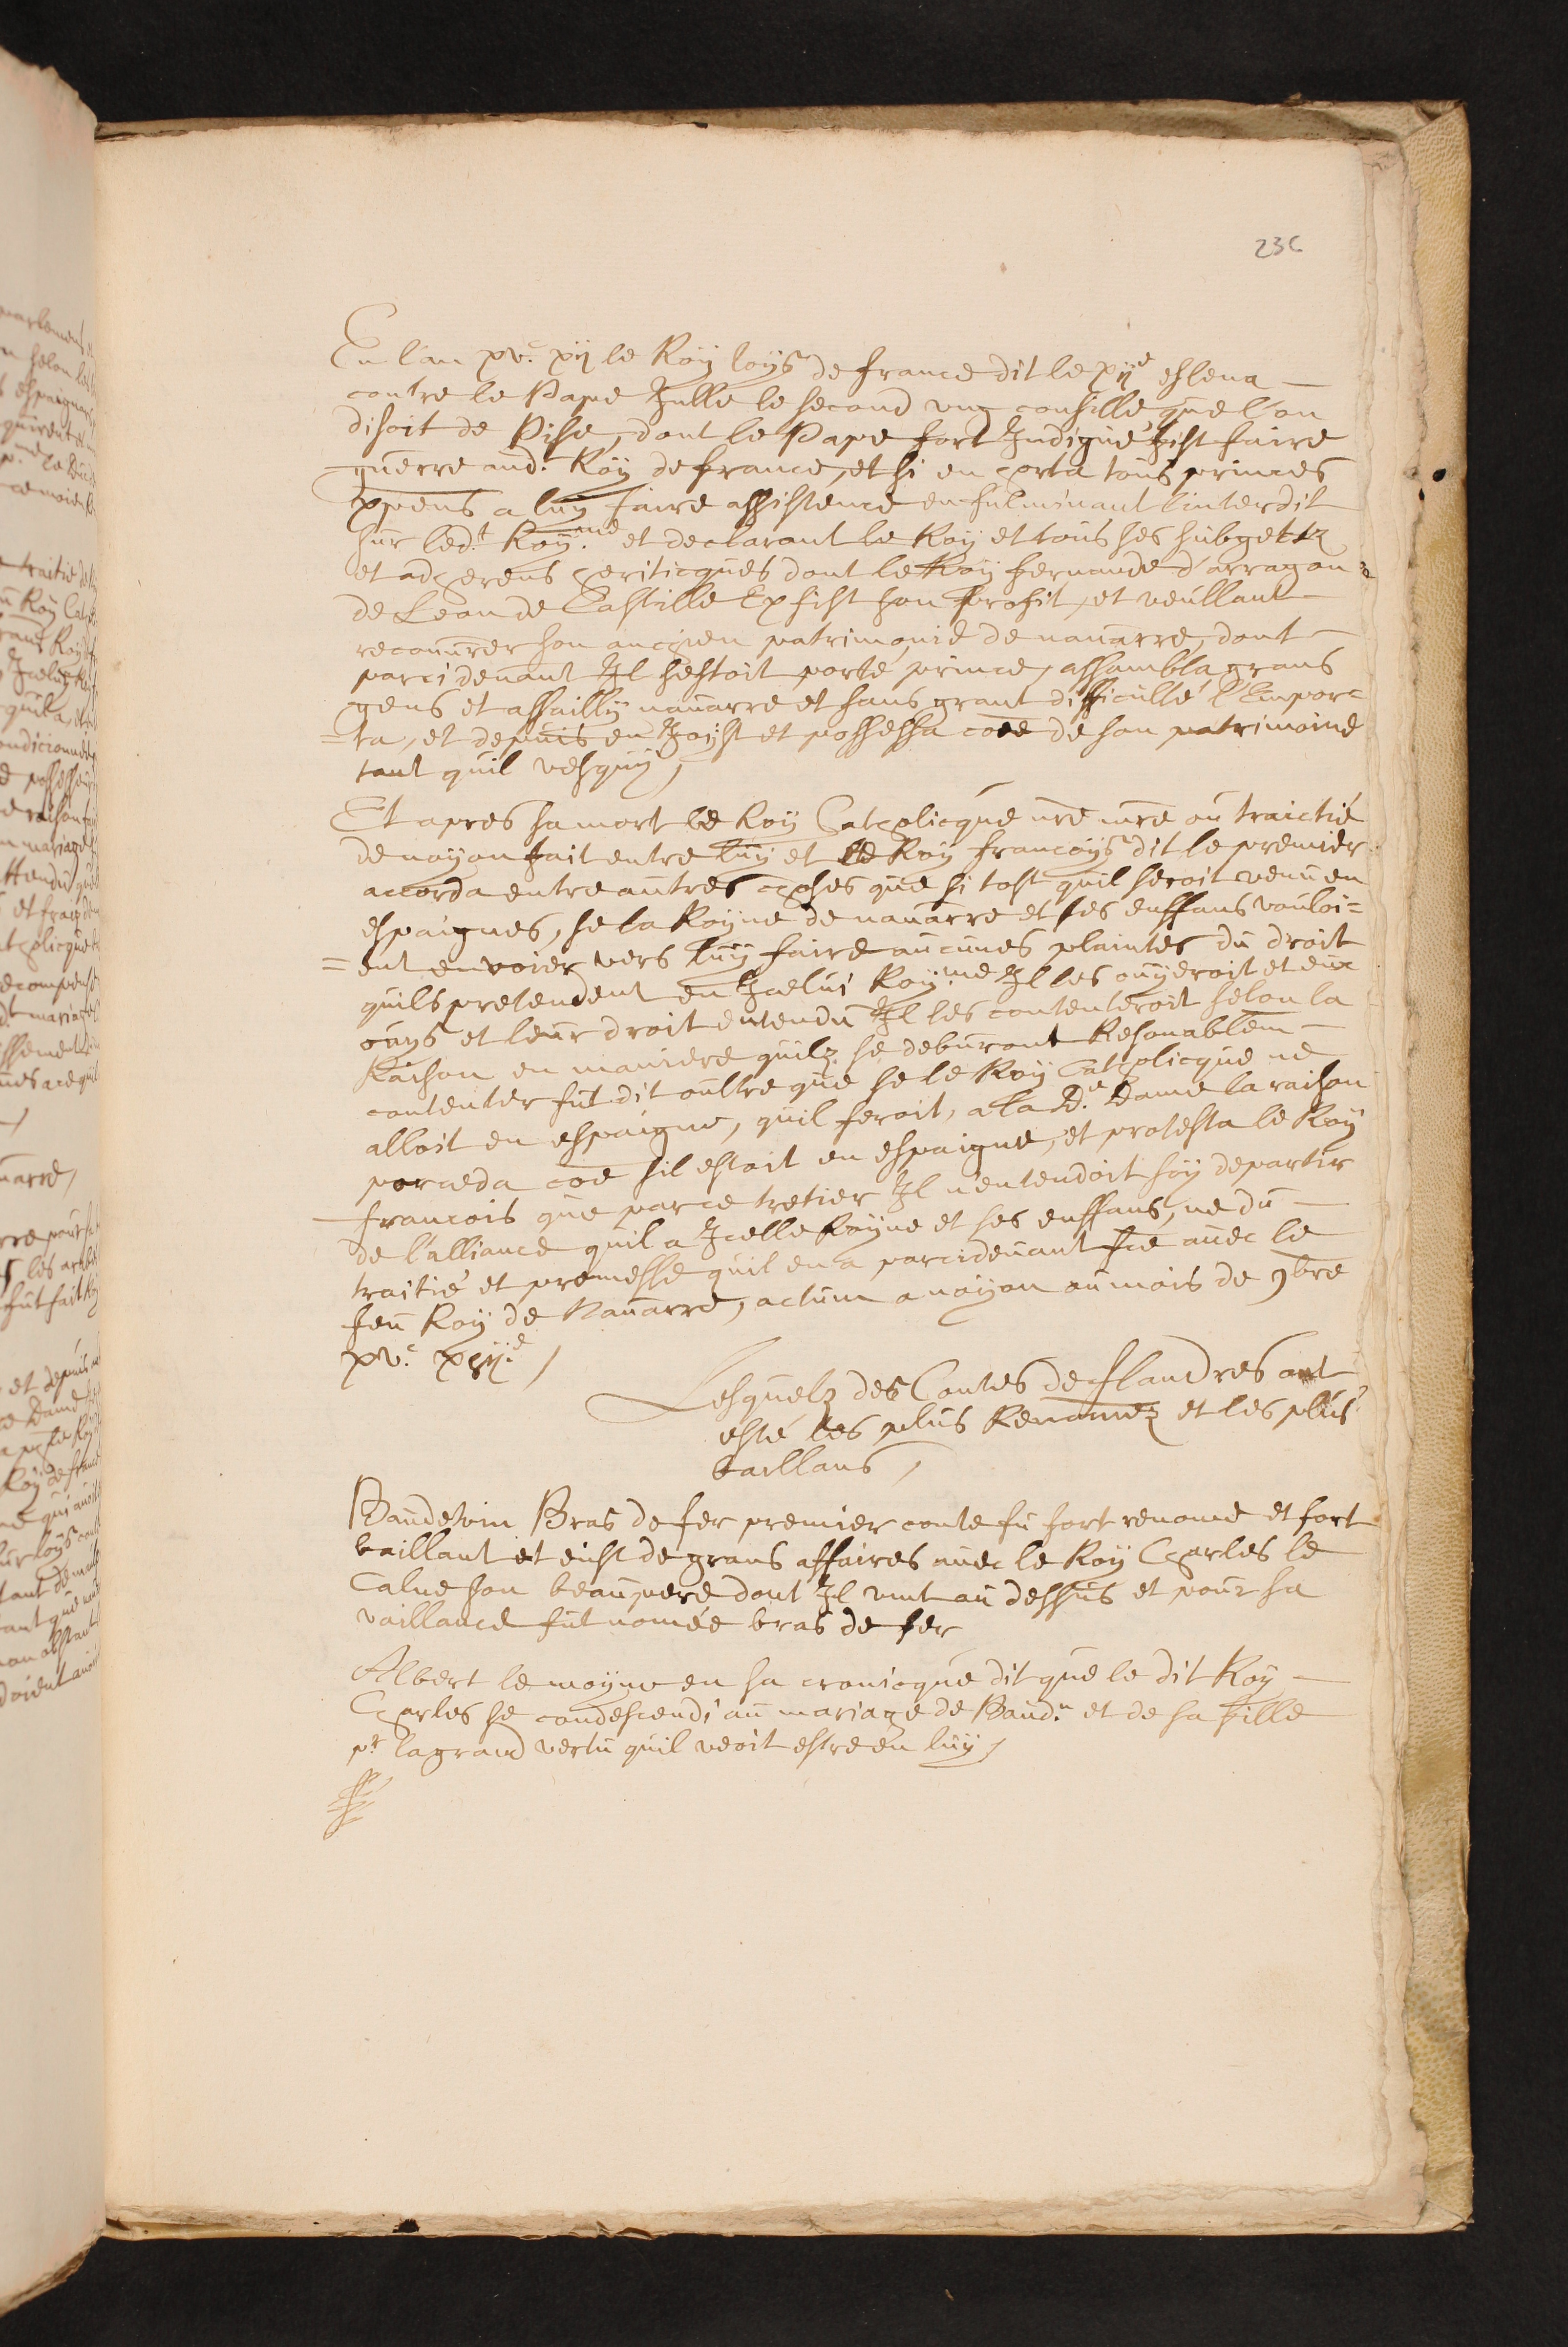 236
En l'an xvc. xij le Roÿ loÿs de france dit le xije esleua
contre le Pape Julle le second vng consille que l'on
disoit de Pise, dont le Pape fort Indigné fist faire
guerre aud.t Roÿ de france, et si en horta tous princes
xpiens a luÿ faire assistence en fulminant linterdit
sur led.t Roÿ.me et declarant le Roÿ et tous ses subgettz
et adherens heriticques dont le Roÿ fernande d'arragon
de Leon de Castille En fist son profit, et veullant
recouurer son anchien patrimonie de nauarre, dont
parcideuant Il sestoit porté prince, assambla grans
gens et assaillÿ nauarre et sans grant difficulté l'Empor=
=ta, et depuis en Joÿst et possessa coe de son patrimoine
tant quil vesquÿ,
Et apres sa mort le Roÿ Catholicque nre sire ou traictié
de noÿon fait entre luÿ et le Roÿ francoÿs dit le premier
accorda entre autres choses que si tost quil seroit venu en
espaignes, se la Roÿne de nauarre et ses enffans vouloi=
=ent envoier vers luÿ faire aucunes plaintes du droit
quils pretendent en Jcelui Roÿ.me Il les ouÿeroit et eux
ouÿs et leur droit entendu Il les contenteroit selon la
Raison en maniere quilz se deburont Resonablem
contenter fut dit oultre que se le Roÿ Catholicque ne
alloit en espaigne, quil feroit, a la d.e Dame la raison
porceda coe sil estoit en espaigne, et protesta le Roÿ
francois que par ce tretier Il n'entendoit soÿ departir
de l'alliance quil a Jcelle Roÿne et ses enffans, ne du
traitié et promesse quil en a parcideuant fce auec le
feu Roÿ de Nauarre, actum a noÿon au mois de 9bre
xvc. xvij.e /
Lesquelz des Contes de flandres ont
esté les plus Renomez et les plus
vaillans /
Baudewin Bras de fer premier conte fu fort renome et fort
vaillant et eust de grans affaires auec le Roÿ Charles le
Calue son beaupere dont Il vint au dessus et pour sa
vaillance fut nomée bras de fer
Albert le moÿne en sa cronicque dit que le dit Roÿ
Charles se condescendi au mariage de Baud.n et de sa fille
pr la grand vertu quil veoit estre en luÿ /